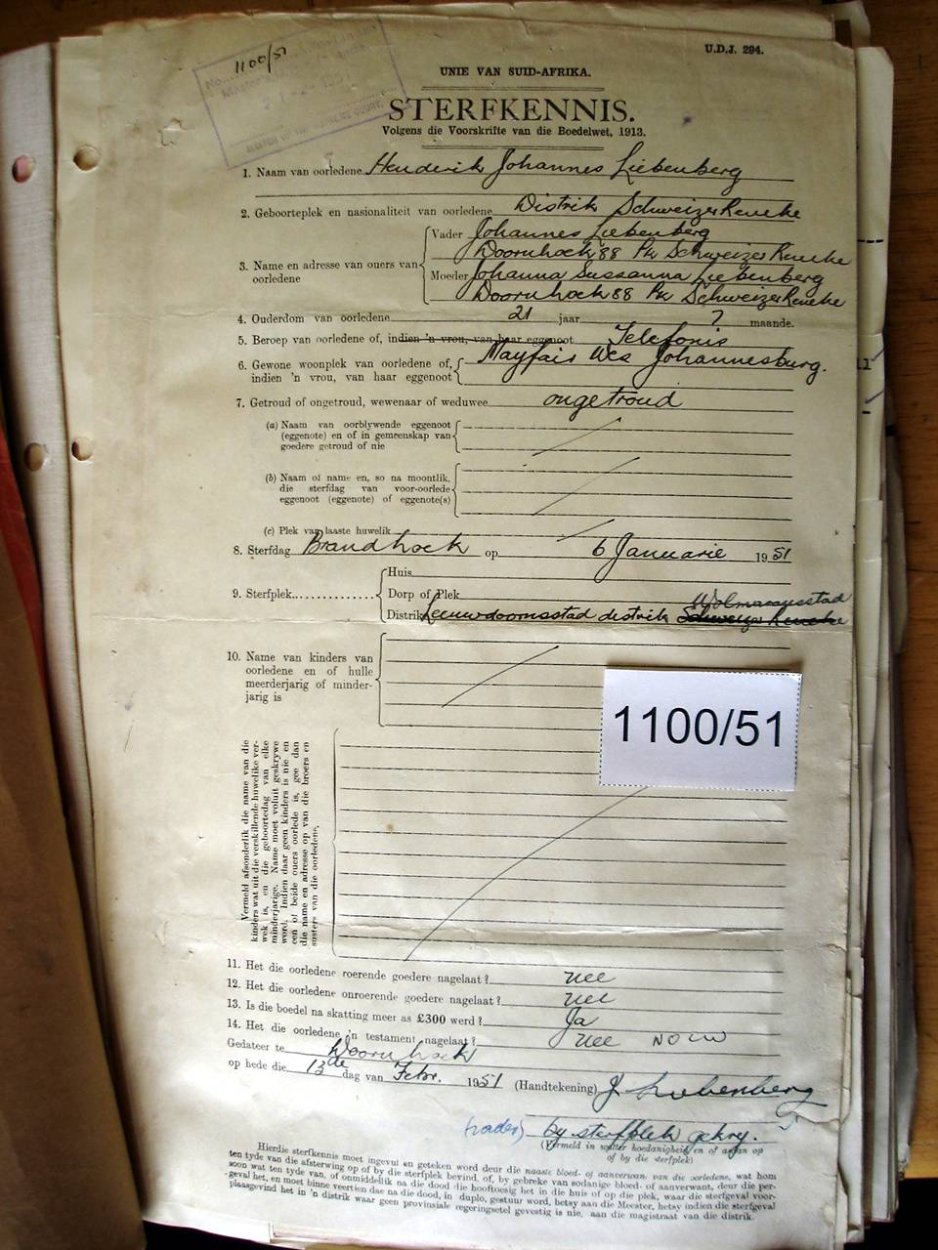 1100/51
U.D.J. 294.
UNIE VAN SUID-AFRIKA.
STERFKENNIS.
Volgens die Voorskrifte van die Boedelwet, 1913.
1. Naam van oorledene Henderik Johannes Liebenberg
2. Geboorteplek en nasionaliteit van oorledene Distrik Schweizer Reneke
3. Name en adresse van ouers van oorledene
Vader Johannes Liebenberg
Doornhoek 88 Pk Schweizer Reneke
Moeder Johanna Sussanna Liebenberg
Doornhoek 88 Pk Schweizer Reneke
4. Ouderdom van oorledene 21 jaar 7 maande.
5. Beroep van oorledene of, indien 'n vrou, van haar eggenoot Telefonis
6. Gewone woonplek van oorledene of, Mayfair Wes Johannesburg.
indien 'n vrou, van haar eggenoot
7. Getroud of ongetroud, wewenaar of weduwee ongetroud
(a) Naam van oorblywende eggenoot
(eggenote) en of in gemeenskap van
goedere getroud of nie
(b) Naam of name en, so na moontlik,
die sterfdag van voor-oorlede
eggenoot (eggenote) of eggenote(s)
(c) Plek van laaste huwelik
8. Sterfdag Brandhoek op 6 Januarie 1951
Huis
9. Sterfplek Dorp of Plek Wolmaransstad
Distrik Leeuwdoornsstad distrik Schweizer Reneke
10. Name van kinders van
oorledene en of hulle
meerderjarig of minder-
jarig is
1100/51
Vermeld afsonderlik die name van die
kinders wat uit die verskillende huwelike ver-
wek is, en die geboortedag van elke
minderjarige. Name moet voluit geskrywe
word. Indien daar geen kinders is nie en
een of beide ouers oorlede is, gee dan
die name en adresse op van die broers en
susters van die oorledene.
11. Het die oorledene roerende goedere nagelaat? nee
12. Het die oorledene onroerende goedere nagelaat? nee
13. Is die boedel na skatting meer as £300 werd? Ja
14. Het die oorledene 'n testament nagelaat? nee NOUW
Gedateer te Doornhoek
op hede die 13de dag van Febr. 1951 (Handtekening) J Liebenberg
(vader) by sterfplek gekry.
(Vermeld in watter hoedanigheid en of
of by die sterfplek)
Hierdie sterfkennis moet ingevul en geteken word deur die naaste bloed- of aanverwant van die oorledene, wat hom
ten tyde van die afsterwing op of by die sterfplek bevind, of, by gebreke van sodanige bloed- of aanverwant, deur die per-
soon wat ten tyde van, of onmiddellik na die dood die hooftoesig het in die huis of op die plek, waar die sterfgeval voor-
geval het, en moet binne veertien dae na die dood, in duplo, gestuur word, hetsy aan die Meester, hetsy indien die sterfgeval
plaasgevind het in 'n distrik waar geen provinsiale regeringsetel gevestig is nie, aan die magistraat van die distrik.